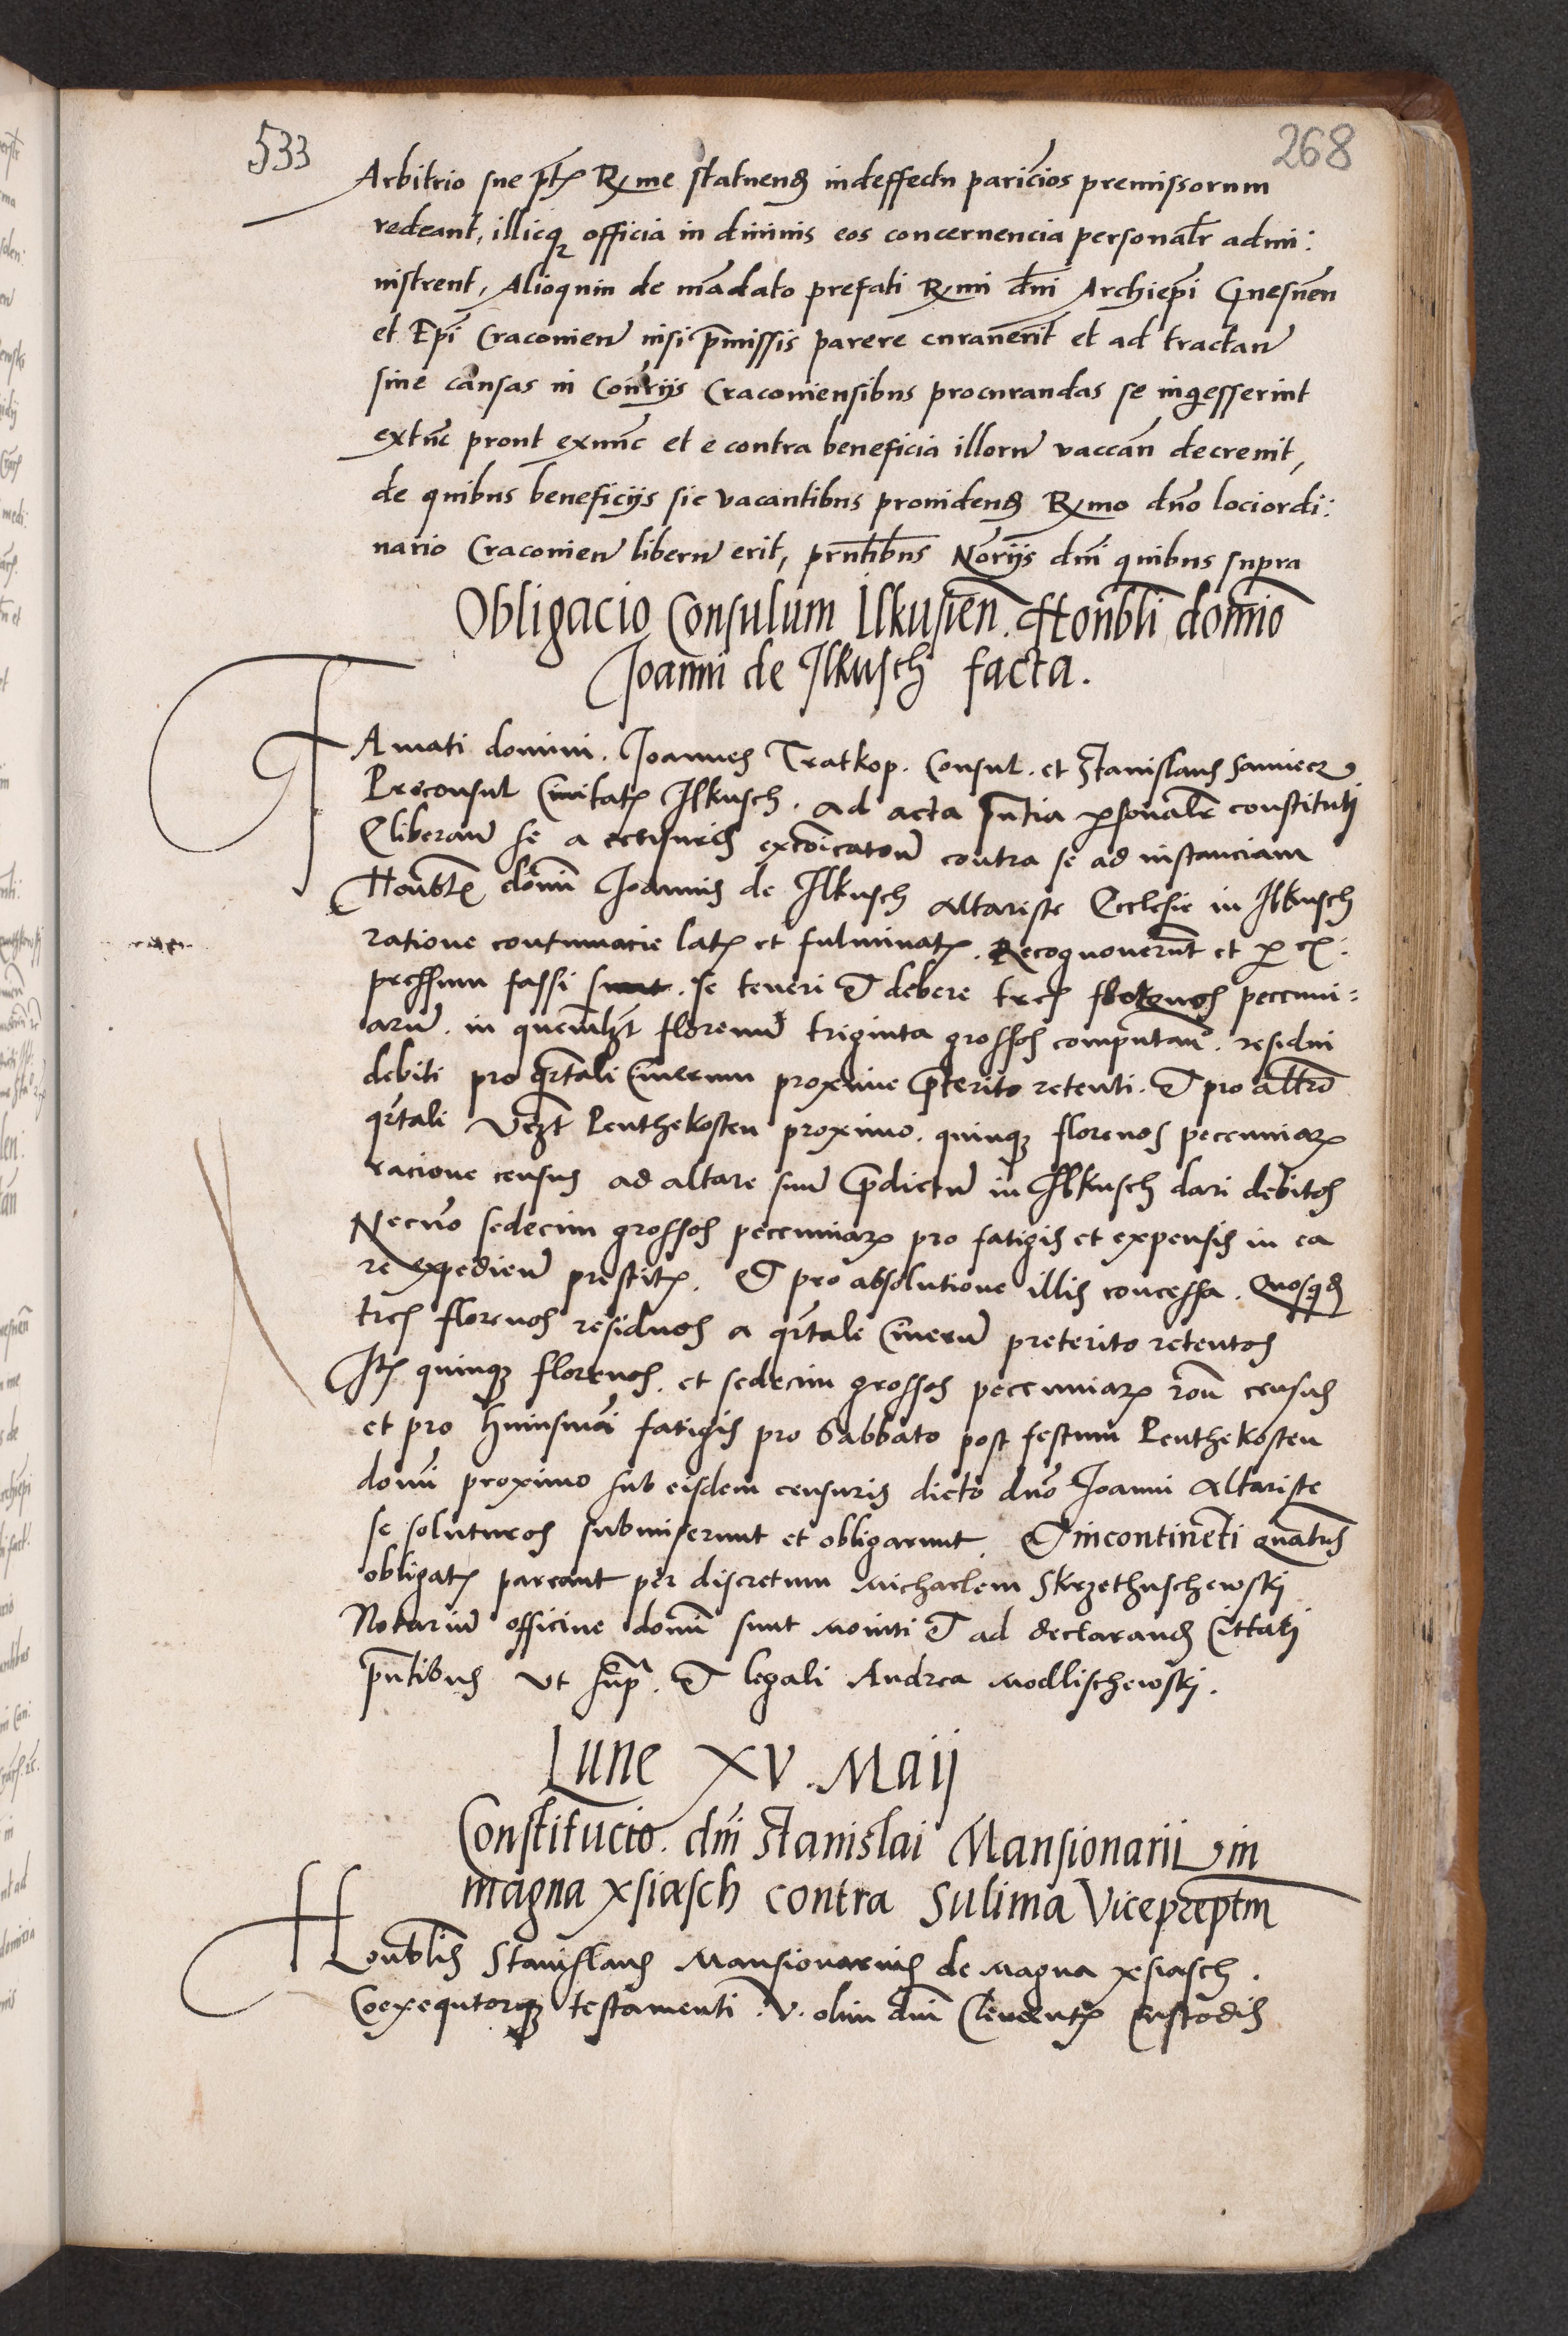 533
268
Arbitrio sue pt. Rme statuend indeffectu paricios premissorum
redeant, illicq officia in diuinis eos concernencia personalr admi:
nistrent, Alioquin de mādato prefati Rmi dni Archiepi Gnesnen
et Epi Cracouien nisi pmissis parere curauerit et ad tractan
siue causas in Conrijs Cracouiensibus procurandas se ingesserint
extūc prout exnūc et e contra beneficia illoru vaccan decreuit,
de quibus beneficijs sic vacantibus prouidend Rmo dno lociordi:
nario Cracouien liberu erit, prntibus Norijs dni quibus supra
Obligacio Consulum Ilkusien. Honbli domio
Joanni de Ilkusch facta.
Famati domini. Joannes Tratkop. Consul. et Stanislaus Samiecz
Preconsul Ciuitat Ilkusch. ad acta pntia psonalr constituti
Cliberan se a censuris excoicatou contra se ad instanciam
Honbl domi Joannis de Ilkusch altariste Ecclesie in Ilkusch
ratione contumacie lat et fulminat. Recognouerunt et p ex:
pressum fassi sunt. se teneri & debere tres florenos peccuni=
aru. in quemlzt florenu triginta grossos computan. residui
debiti pro qrtali Cineru proxime preterito retenti. & pro altro
qrtali Vezt Penthekosten proximo. quinq florenos peccuniar
racione census ad altare suu pdictu in Ilkusch dari debitos
Necno sedecim grossos peccuniar pro fatigis et expensis in ea
re expedien prestit. & pro absolutione illis concessa. Quosqd
tres florenos residuos a qrtale Cineru preterito retentos
Ite quinq florenos. et sedecim grossos peccuniar ron census
et pro huiusmōi fatigis pro Sabbato post festum Penthekosten
domi proximo sub eisdem censuris dicto dno Joanni altariste
se soluturos submiserunt et obligarunt. & incontineti quatus
obligat pareant per discretum Michaelem Skrzethuschewskj
Notariu officine domi sunt moniti & ad declarand Cittati
pntibus vt sup. & legali Andrea modlischewskj.
Lune XV. Maij
Constitucio. dni Stanislai Mansionarii in
magna xsiasch contra Sulima Vicepreptm
Honblis Stanislaus Mansionarius de Magna xsiasch.
Coexequtorq testamenti. V. olim dni Clement Custodis